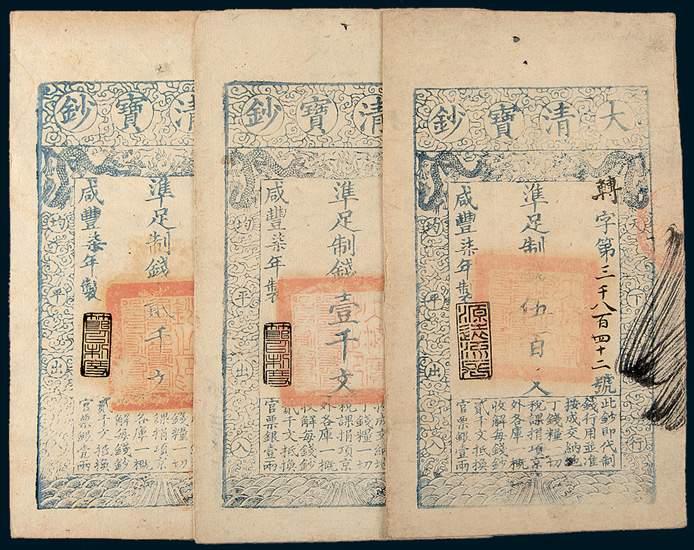 大清寶鈔
轉字第三千八百四十二號
準足制錢伍百文
咸豐柒年製
天下行
均平出入
源遠流長
此鈔即代制
錢行用並准
按成交納地
丁錢糧一切
稅課捐項京
外各庫一概
收解每錢鈔
貳千文抵換
官票銀壹兩
清寶鈔
準足制錢壹千文
咸豐柒年製
均平出入
成交納地
錢糧一切
稅課捐項京
外各庫一概
收解每錢鈔
貳千文抵換
官票銀壹兩
清寶鈔
準足制錢貳千文
咸豐柒年製
均平出入
錢糧一切
課捐項京
各庫一概
解每錢鈔
貳千文抵換
官票銀壹兩